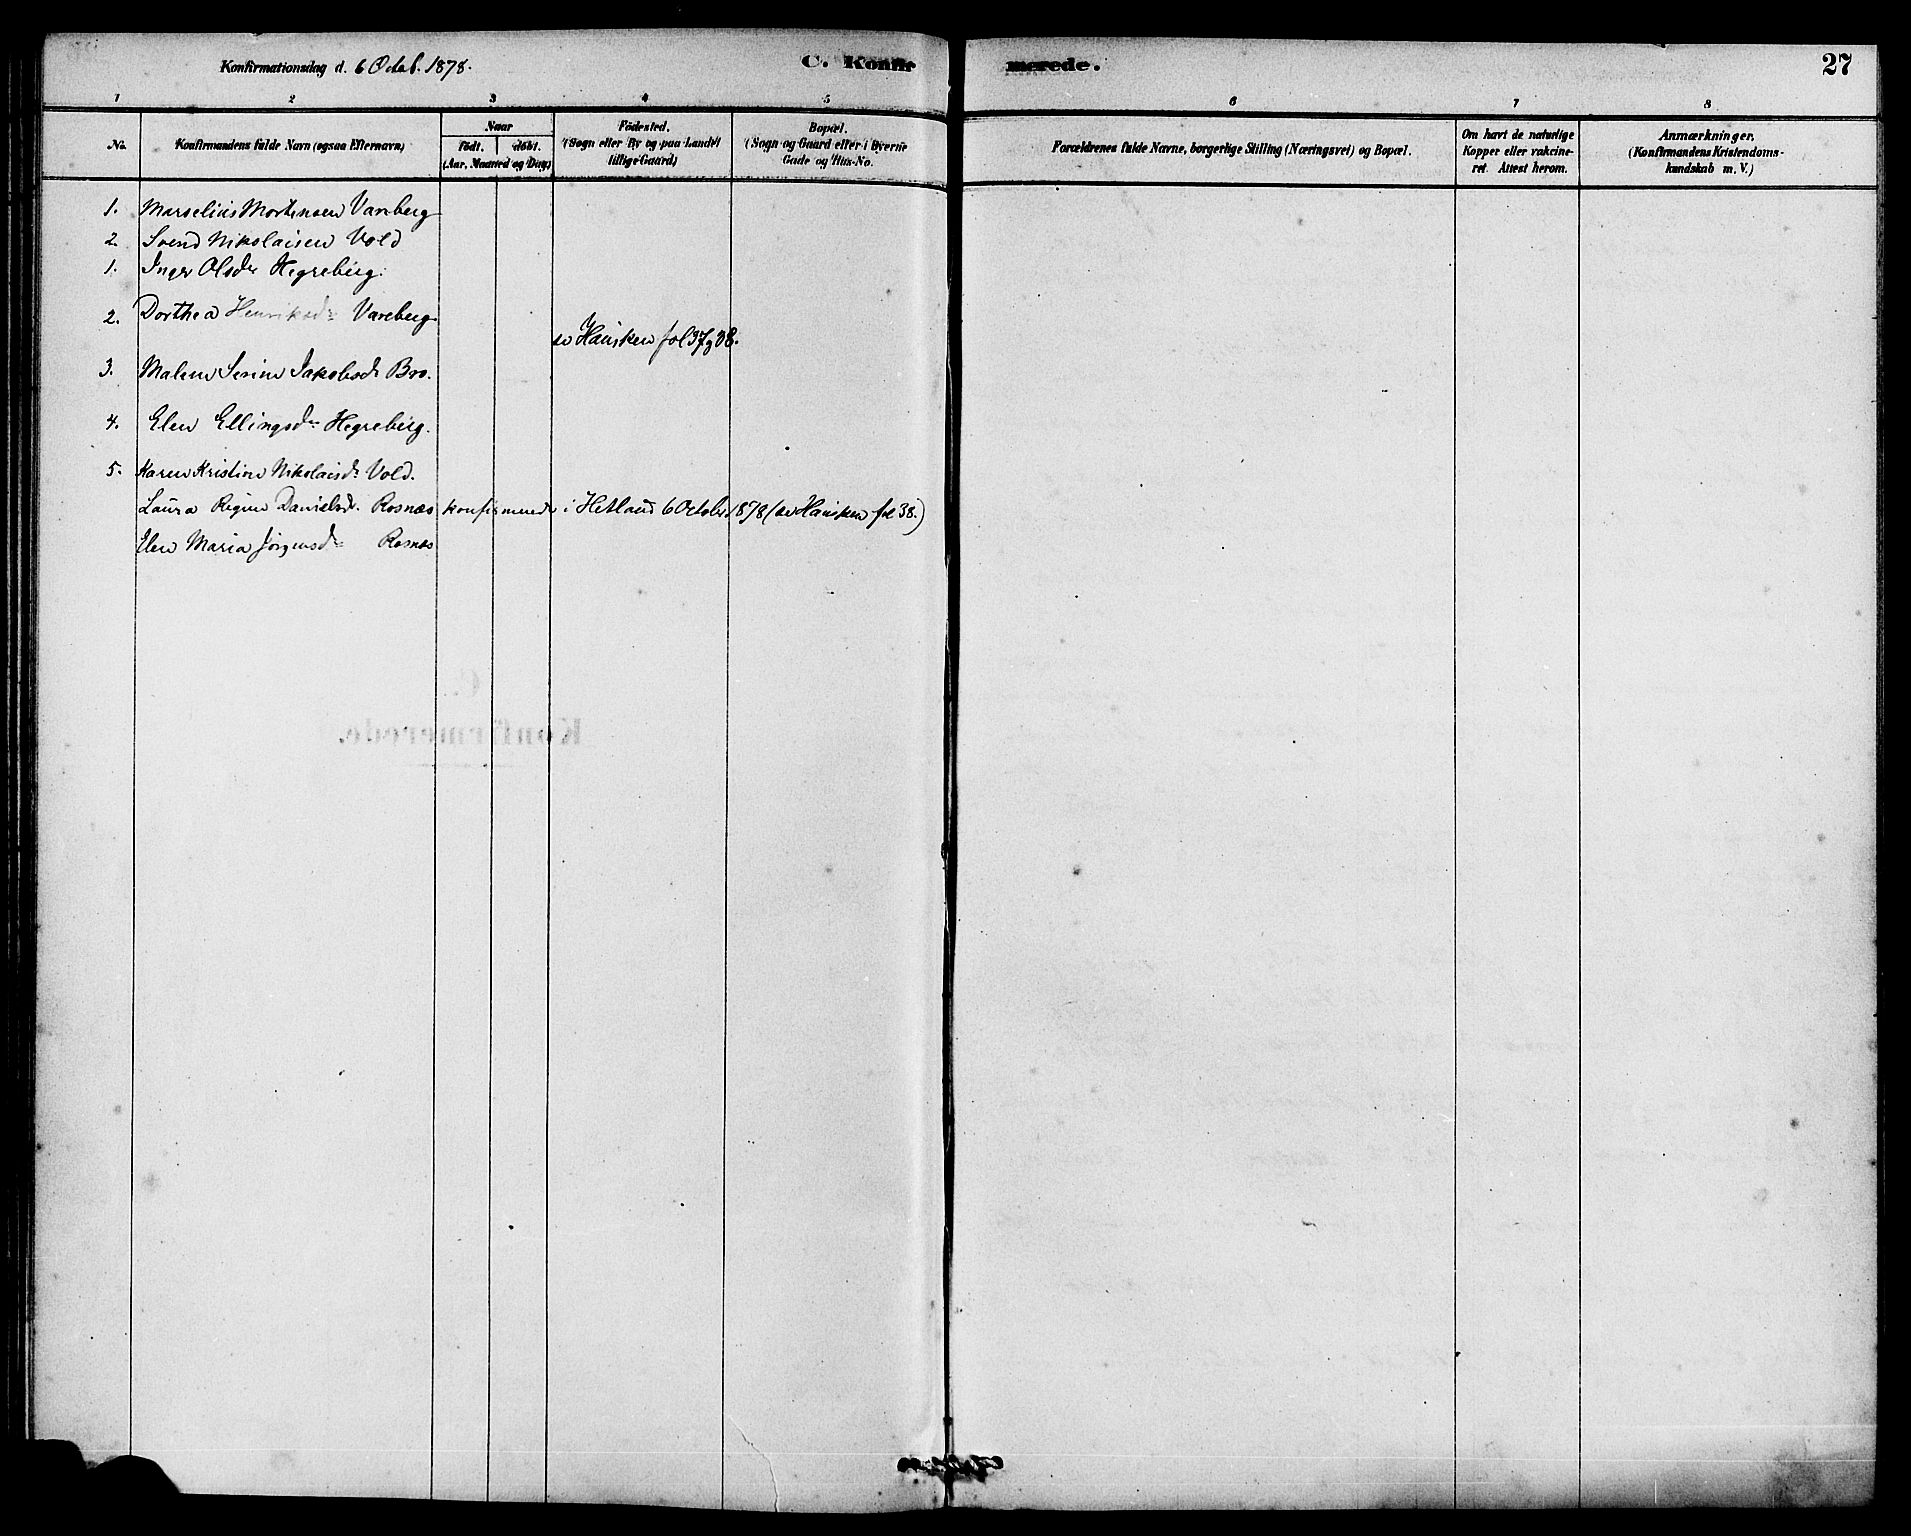 Konfirmationsdag d. 6 Octob. 1878.
C. Konfirmerede.
27
1 2 3 4 5 6 7 8
No.
Konfirmandens fulde Navn (ogsaa Efternavn)
Naar
födt. döbt.
(Aar, Maaned og Dag)
Födested.
(Sogn eller By og paa Landet
tillige Gaard)
Bopæl.
(Sogn og Gaard eller i Byerne
Gade og Hus-No.
Forældrenes fulde Navne, borgerlige Stilling (Næringsvei) og Bopæl.
Om havt de naturlige
Kopper eller vakcine-
ret. Attest herom.
Anmærkninger.
(Konfirmandens Kristendoms-
kundskab m. V.)
1. Marselius Mortensen Vareberg
2. Svend Nikolaisen Vold
1. Inger Olsdr Hegreberg.
2. Dorthea Henriksdr Vareberg
se Hausken fol 37 g 38.
3. Malene Serine Jakobsdr Bro.
4. Elen Ellingsdr Hegreberg.
5. Karen Kristine Nikolaisdr Vold.
Laura Regine Danielsdr. Rosnæs konfirmerede i Hetland 6 October 1878 (se Hausken fol 38.)
Elen Maria Jörgensdr Rosnæs
C.
Konfirmerede.